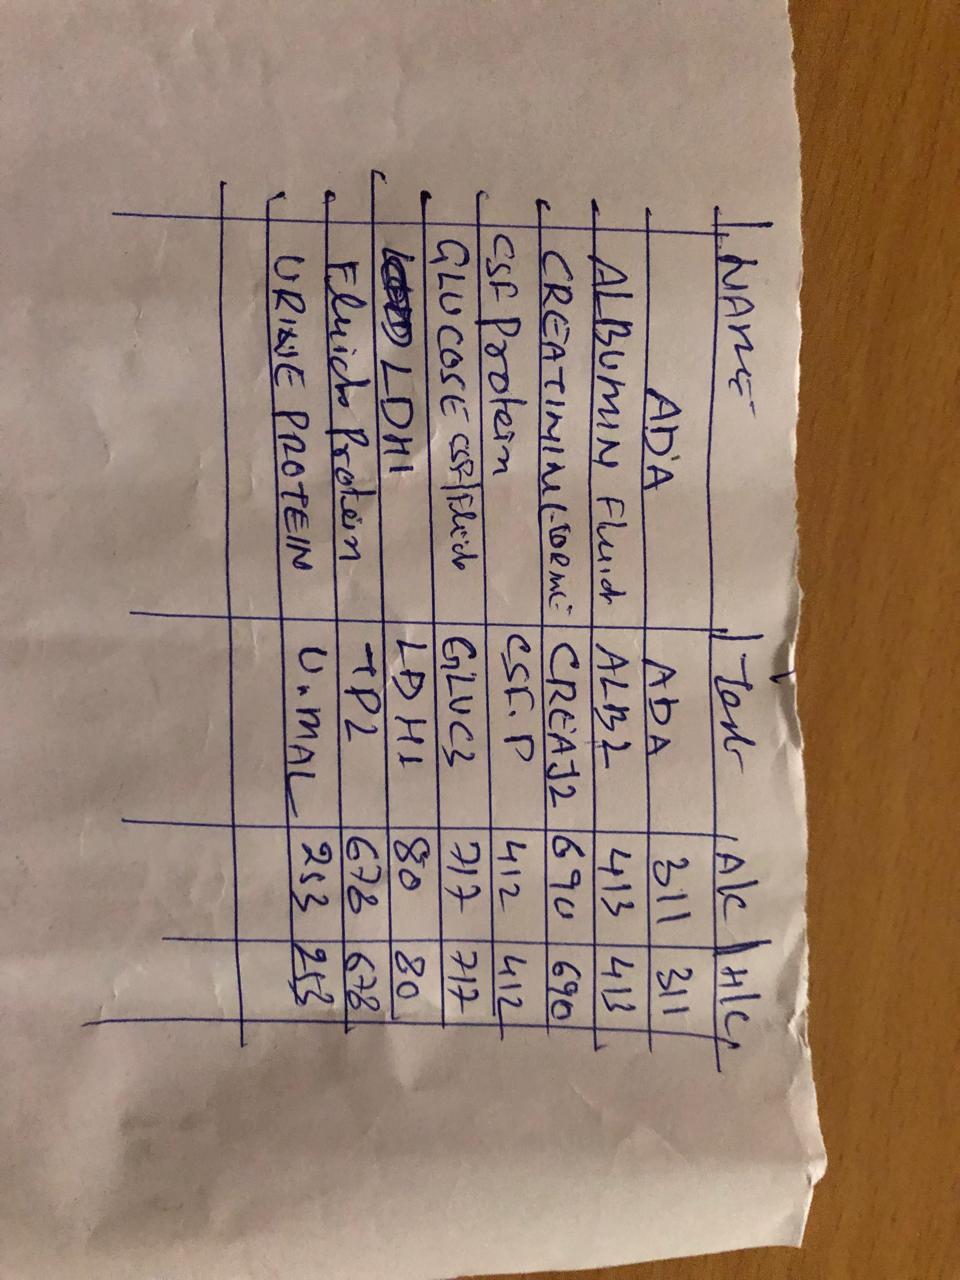 NAME Test A/C H/C
ADA ADA 311 311
ALBUMIN Fluid ALB2 413 413
CREATININE CREAJ2 690 690
CSF Protein CSF.P 412 412
GLUCOSE CSF/Fluid GLUC3 717 717
LDHI LDHI 80 80
Fluid Protein TP2 678 678
URINE PROTEIN U.MAL 253 253